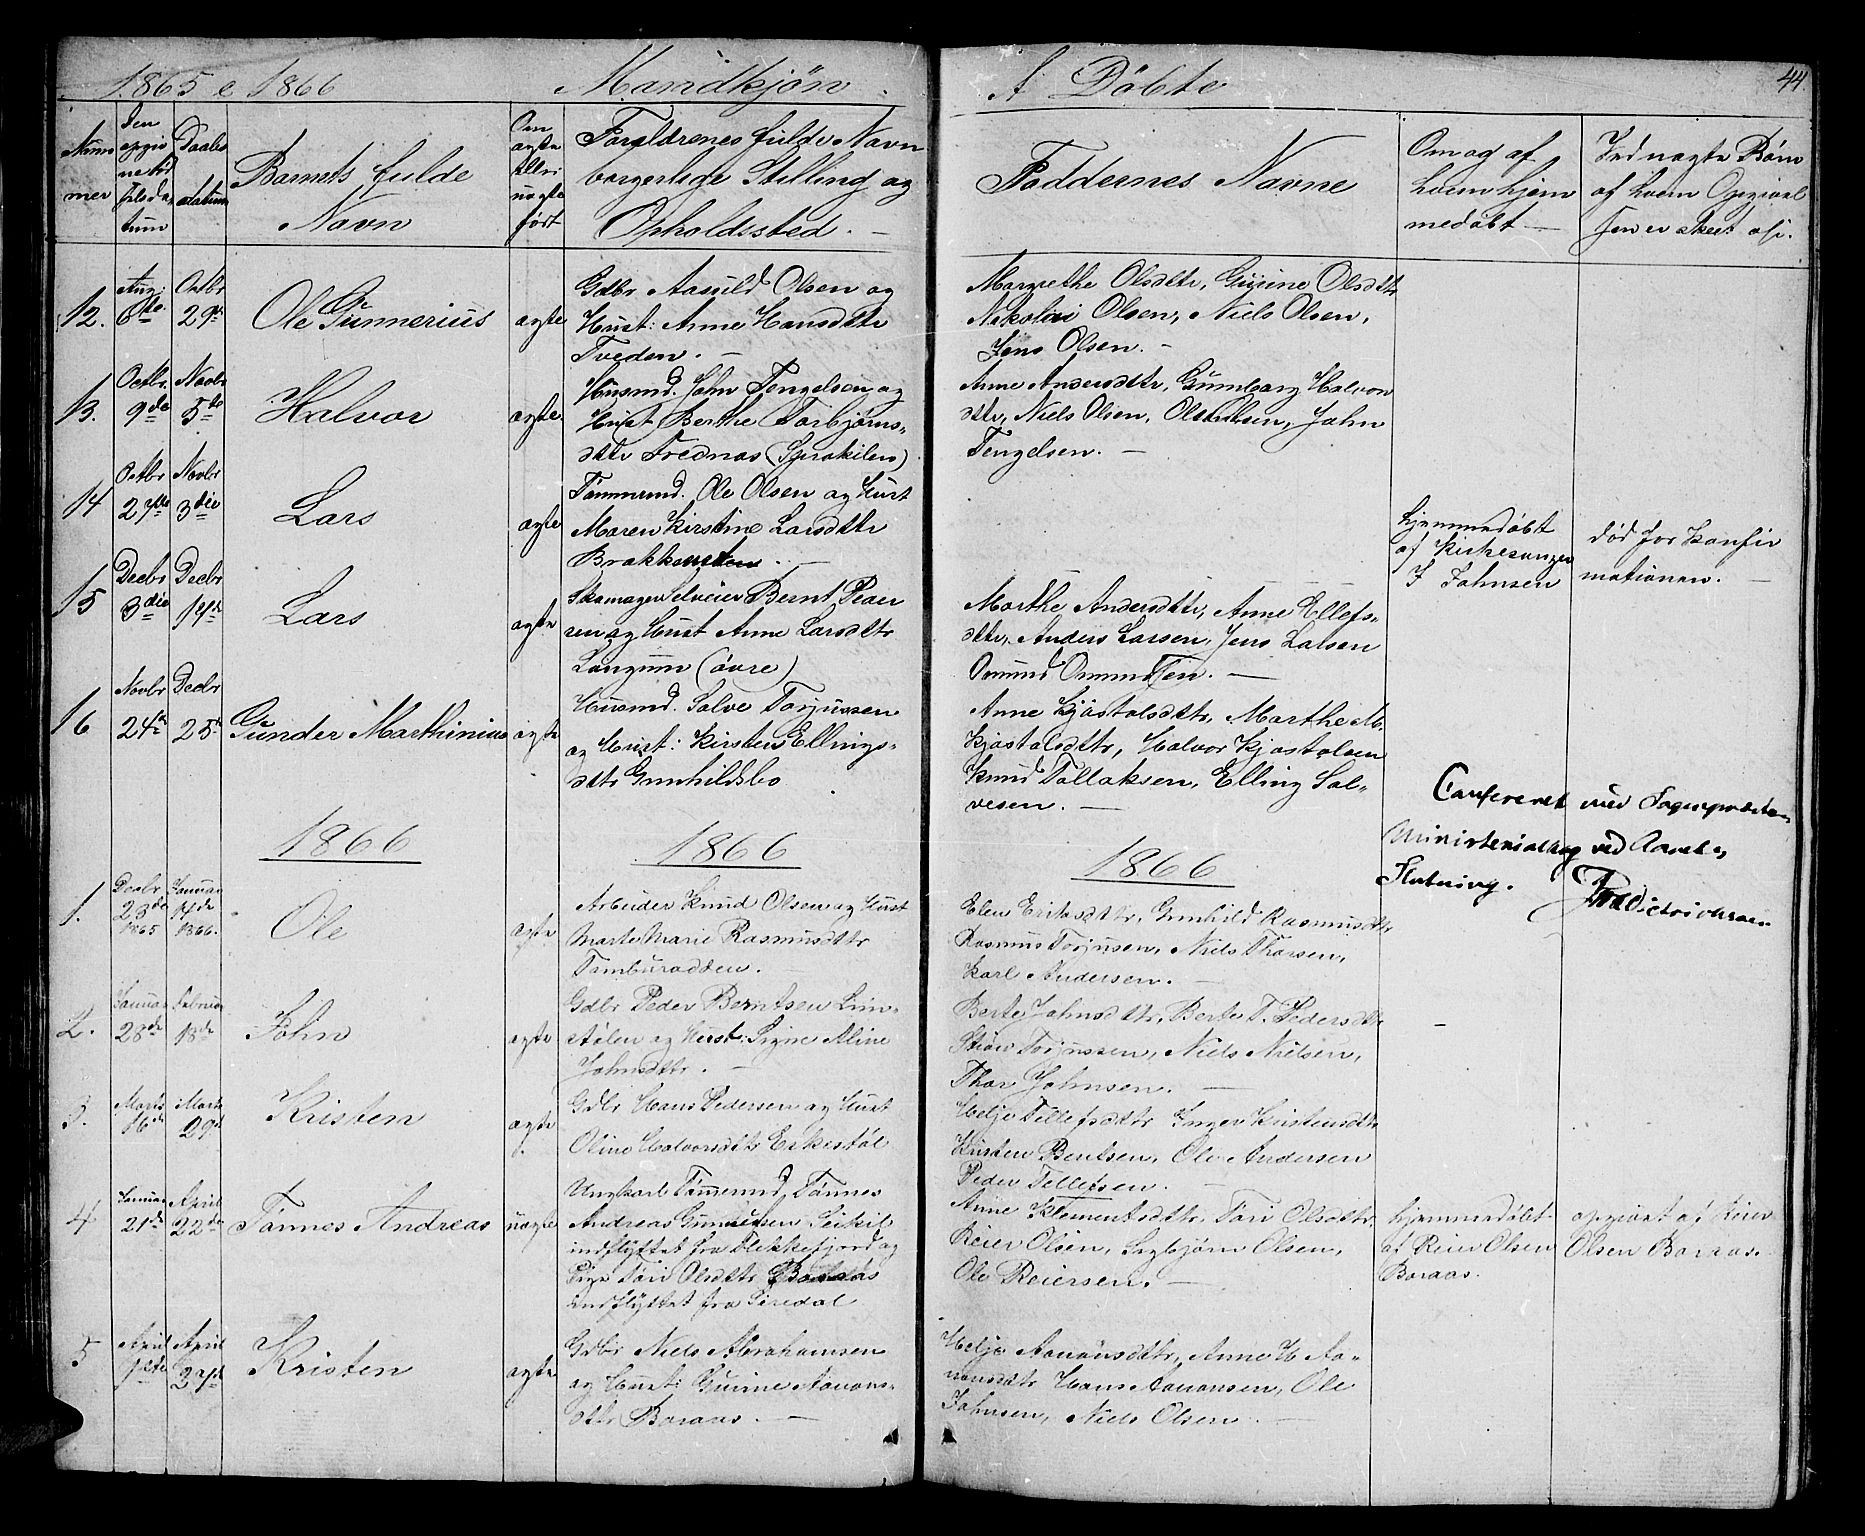 1865 e 1866 Mandkjøn. A. Døbte 44
Num mer
Den opgiv ne fødselsdatum
Daabs datum
Barnets fulde Navn
Om ægte eller uægte født
Forældrenes fulde Navn borgerlige Stilling og Opholdssted. —
Faddernes Navne
Om og af hvem hjemmedøbt —
Ved uægte Børn af hvem Opgivel sen er skeet osv.
12. Aug: 6te Octbr 29de Ole Gunnerius ægte
Gdbr Aasuld Olsen og
Hust: Anne Hansdttr
Tveden. —
Margrethe Olsdttr, Gurine Olsdttr
Nikolai Olsen, Niels Olsen,
Jens Olsen. —
13. Octbr. 9de Novbr 5te Halvor ægte
Husmd. John Tengelsen og
Hust Berthe Torbjørns-
dttr Frednæs (Sprækilen)
Anne Andersdttr, Gunnborg Halvors
dttr, Niels Olsen, John
Tengelsen. —
14 Octbr 27de Novbr 3die Lars ægte
Tømmermd. Ole Olsen og Hust
Maren Kirstine Larsdttr
Brækkersten. —
hjemmedøbt
af Kirkesanger
J Johnsen
død før Konfir
mationen. —
15 Decbr 3die Decbr 17de Lars ægte
Skomager Selveier Bernt Peder
sen og Hust Anne Larsdttr
Langum (øvre)
Marthe Andersdttr, Anne Ellefs-
dttr, Anders Larsen, Jens Larsen
Omund Omundsen. —
16 Novbr 24de Decbr 25de Gunder Marthinius ægte
Husmd. Salve Torjussen
og Hust: Kirsten Ellings-
dttr Gunhildsbo
Anne Kjøstolsdttr, Marthe M.
Kjøstolsdttr, Halvor Kjøstolsen
Knud Tollaksen, Elling Sal-
vesen. —
Confereret med Sogneprestens
Ministerialbog ved Aarets
Slutning.
1866 1866 1866
1. Decbr 28de 1865 Januar 14de 1866. Ole ægte
Arbeider Knud Olsen og Hust
Marte Marie Rasmusdttr
Tamburodden. —
Elen Eriksdttr, Gunhild Rasmusdttr
Rasmus Torjusen, Niels Thorsen,
Karl Andersen. —
2. Januar 28de Februar 18de John ægte
Gdbr Peder Berntsen Lun-
stølen og Hust: Signe Aline
Johnsdttr. —
Berte Johnsdttr, Berte T. Pedersdttr
Torjussen, Niels Nielsen,
Thor Johnsen. —
3. Marts 16de Marts 29de Kristen ægte
Gdbr Hans Pedersen og Hust
Oline Halvorsdttr Eskestøl
Helje Tellefsdttr Inger Kristensdttr
Kristen Bentsen, Ole Andersen
Peder Tellefsen. —
4 Januar 21de April 22de Tønnes Andreas uægte
Ungkarl Tømmermd, Tønnes
Andreas Gundersen
indflyttet fra Flekkefjord og
Pige Tori Olsdttr Boraas
indflyttet fra Siredal
Anne Klementsdttr Tori Olsdttr,
Reier Olsen, Sigbjørn Olsen,
Ole Reiersen. —
hjemmedøbt
af Reier Olsen
Boraas.
opgivet af Reier
Olsen Boraas.
5 April 1ste April 27de Kristen ægte
Gdbr Niels Abrahamsen
og Hust: Gurine Aanons-
dttr Boraas. —
Helje Aanonsdttr, Anne H. Aa-
nonsdttr Hans Aanonsen, Ole
Johnsen, Niels Olsen.